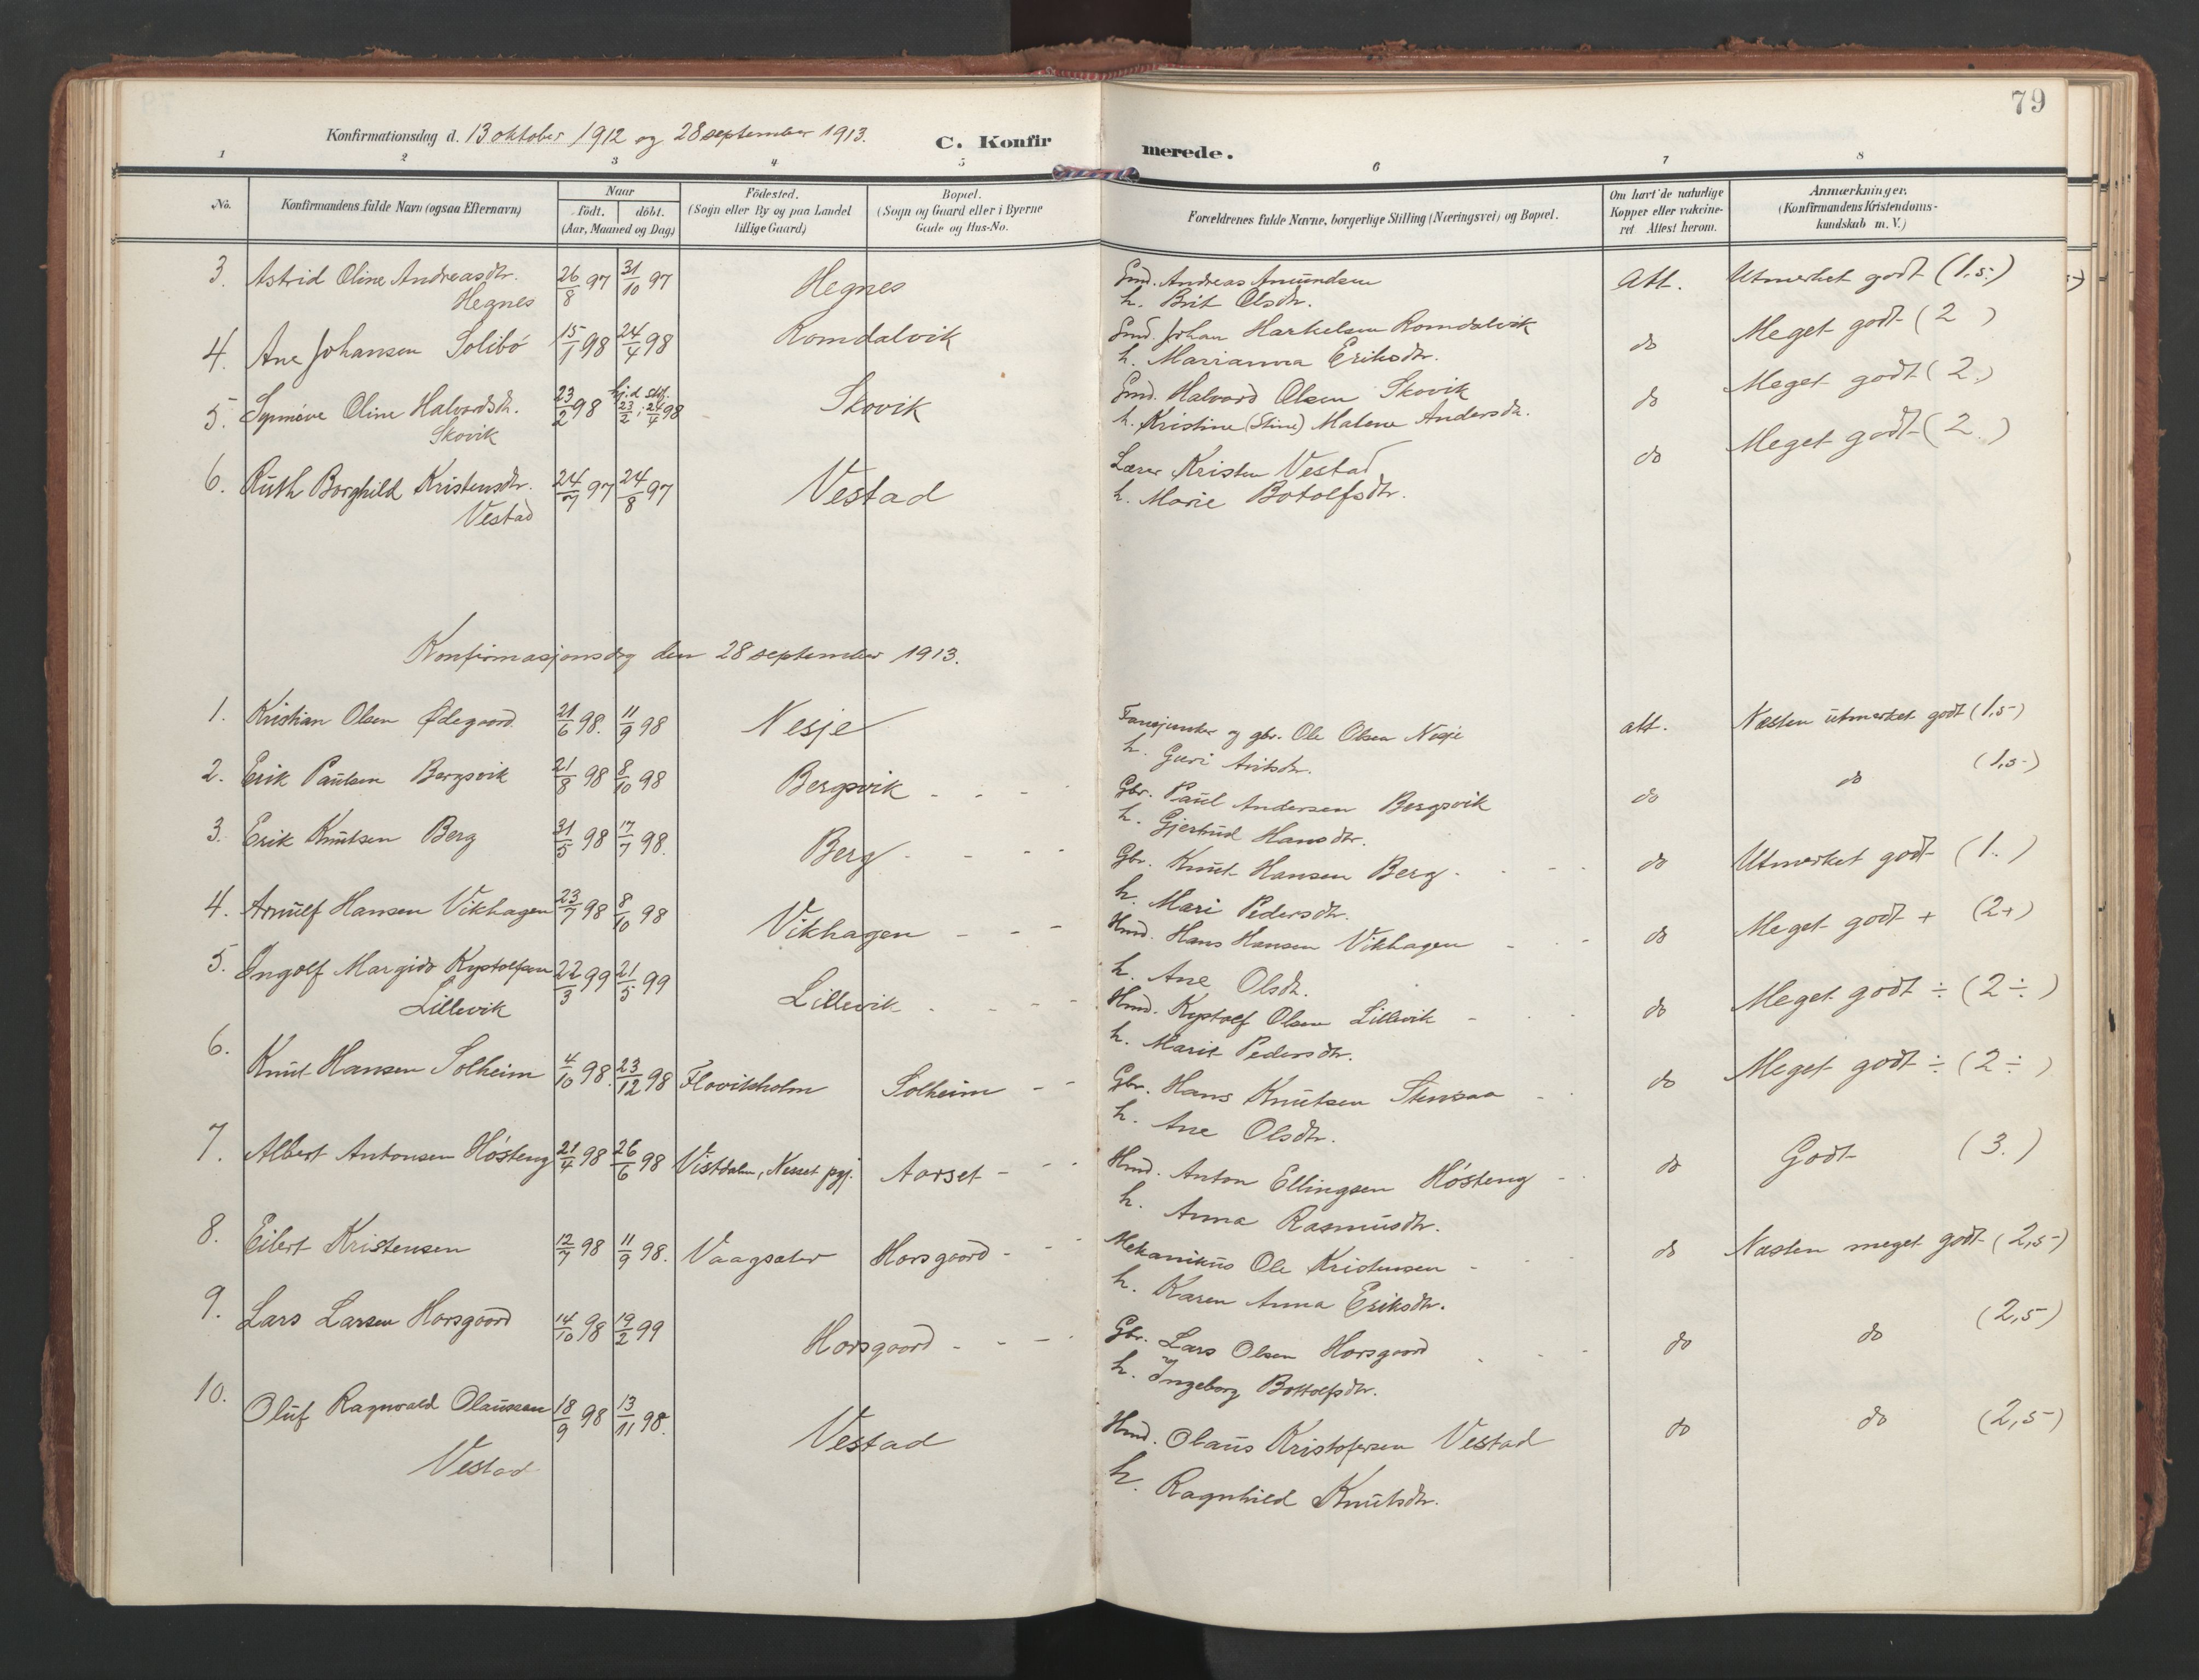 79
Konfirmationsdag d. 13 oktober 1912 og 28 september 1913.
C. Konfirmerede.
1 2 3 4 5 6 7 8
No.
Konfirmandens fulde Navn (ogsaa Efternavn)
Naar
födt. döbt.
(Aar, Maaned og Dag)
Födested.
(Sogn eller By og paa Landet
tillige Gaard)
Bopæl.
(Sogn og Gaard eller i Byerne
Gade og Hus-No.
Forældrenes fulde Navne, borgerlige Stilling (Næringsvei) og Bopæl.
Om havt de naturlige
Kopper eller vakcine-
ret Attest herom.
Anmærkninger.
(Konfirmandens Kristendoms-
kundskab m. V.)
3. Astrid Oline Andreasdtr. 26/8 97 31/10 97 Hegnes Gmd. Andreas Amundsen Att. Utmerket godt (1,5-)
Hegnes h. Brit Olsdtr.
4. Ane Johansen Solibö 15/1 98 24/4 98 Romdalvik Gmd. Johan Romdalvik do Meget godt (2 )
h. Marianna Eriksdtr.
5. Synnöve Oline Halvordsdtr. 23/2 98 hj.d 23/2 ; 24/4 98 Skovik Gmd. Halvord Olsen Skovik do Meget godt (2.)
Skovik h. Kristine (Stine) Malene Andersdtr.
6. Ruth Borghild Kristensdtr. 24/7 97 24/8 97 Vestad Lærer Kristen Vestad do Meget godt (2.)
Vestad h. Marie Botolfsdtr.
Konfirmasjonsdag den 28 september 1913.
1. Kristian Olsen Ødegaard 21/6 98. 11/9 98 Nesje Fanejunker og gbr. Ole Olsen Nesje att. Næsten utmerket godt (1,5-)
h. Guri
2. Erik Paulsen Bergsvik 21/8 98 8/10 98 Bergsvik - - - Gbr. Paul Andersen Bergsvik do do (1,5-)
h. Gjertrud Hansdtr.
3. Erik Knutsen Berg 31/5 98 17/7 98. Berg - - - - Gbr. Knut Hansen Berg - - - do Utmerket godt (1.)
h. Mari Pedersdtr.
4. Arnulf Hansen Vikhagen 23/7 98 8/10 98 Vikhagen - - - Hmd. Hans Hansen Vikhagen - - do Meget godt + (2+)
h. Ane Olsdtr.
5. Ingolf Margido Kystolfsen 22/3 99 21/5 99 Lillevik - - - Hmd. Kystolf Olsen Lillevik - - do Meget godt ÷ (2÷)
Lillevik h. Marit Pedersdtr.
6. Knut Hansen Solheim 4/10 98. 23/12 98 Flovikholm Solheim - - Gbr. Hans Knutsen Stensaa - do Meget godt ÷ (2÷)
h. Ane Olsdtr.
7. Albert Antonsen Hösteng 21/4 98 26/6 98 Vistdalen, Nesset pgj. Aarset - - Hmd. Anton Ellingsen Hösteng - do Godt (3.)
h. Anna Rasmusdtr.
8. Eilert Kristensen 12/7 98 11/9 98. Vaagsater Horsgaard - - Mekanikus Ole Kristensen - do Næsten meget godt (2,5-)
h. Karen Anna Eriksdtr.
9. Lars Larsen Horsgaard 14/10 98 19/2 99 Horsgaard - - - Gbr. Lars Olsen Horsgaard - - do do (2,5)
h. Ingeborg Bottolfsdtr.
10. Oluf Ragnvald Olaussen 18/9 98 13/11 98. Vestad Hmd. Olaus Kristofersen Vestad do do (2,5-)
Vestad h. Ragnhild Knutsdtr.